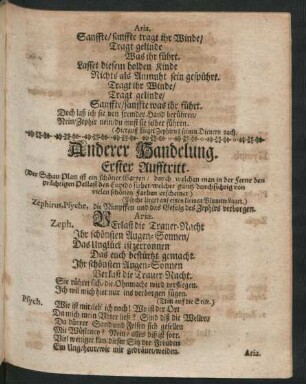 Aria.
Sanffte/ sanffte tragt ihr Winde/
Tragt gelinde
Was ihr führt.
Lasset diesem holden Kinde
Nichts als Anmuht sein gespührt.
Tragt ihr Winde/
Tragt gelinde/
Sanffte/ sanffte was ihr führt.
Doch laß ich sie von fremder Hand berühren/
Nein/ Zephir nein/ du must sie selber führen.
(Hierauf flieget Zephirus seinen Dienern nach.
Anderer Handelung.
Erster Aufftritt.
(Der Schau Plan ist ein schöner Garten/ durch welchen man in der Ferne den
prächtigen Pallast des Cupido siehet welcher gantz durchsichtig von
vielen schönen Farben erscheinet.)
(Psyche lieget auf einem kleinen Blumen Hügel.)
Zephirus, Psyche, die Nimpffen und das Gefolg des Zephirs verborgen.
Aria.
Zeph. Verlast die Trauer-Nacht
Ihr schönsten Augen-Sonnen/
Das Unglück ist zerronnen
Das euch bestürtzt gemacht.
Ihr schönsten Augen-Sonnen
Verlast die Trauer-Nacht.
Sie rühret sich/ die Ohnmacht wird verfliegen.
Ich wil mich hier nur ins verborgen fügen.
(Tritt auf die Seite.)
Psych. Wie ist mir/ leb' ich noch! Wo ist der Ort
Da mich mein Vater ließ? Sind diß die Wellen/
Da dürrer Sand und Felsen sich gesellen
Mit Wüsteney? Nein/ alles dis ist fort.
Viel weniger kan dieser Sitz der Freuden
Ein Ungeheur wie mir gedräuet/ weiden.
Aria.